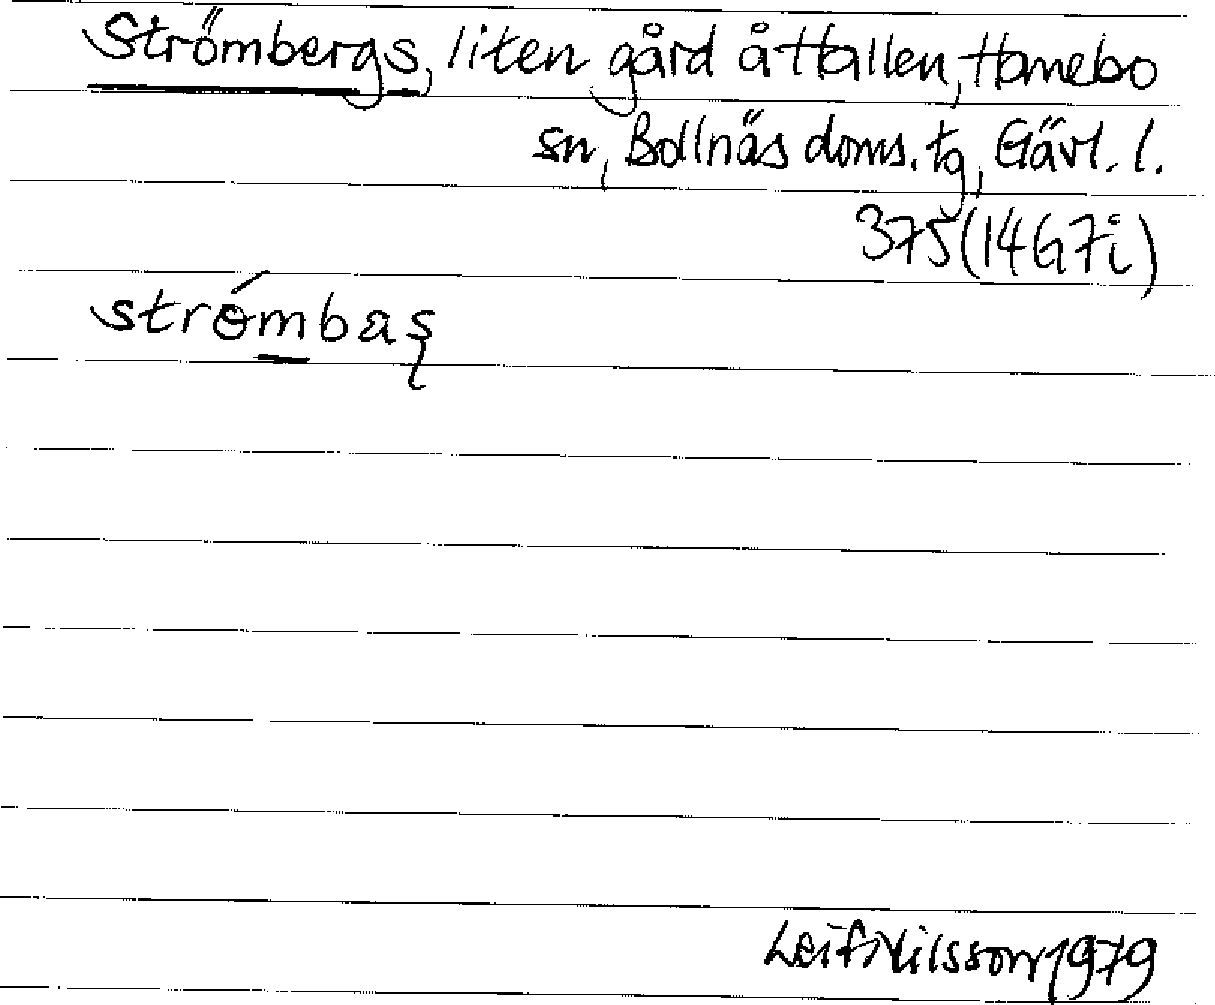 Strömbergs, liten gård å Hällen, Hanebo
sn, Bollnäs doms. tg, Gävl. l.
375 (14G7i)
strǿmbaș
Leif Nilsson 1979